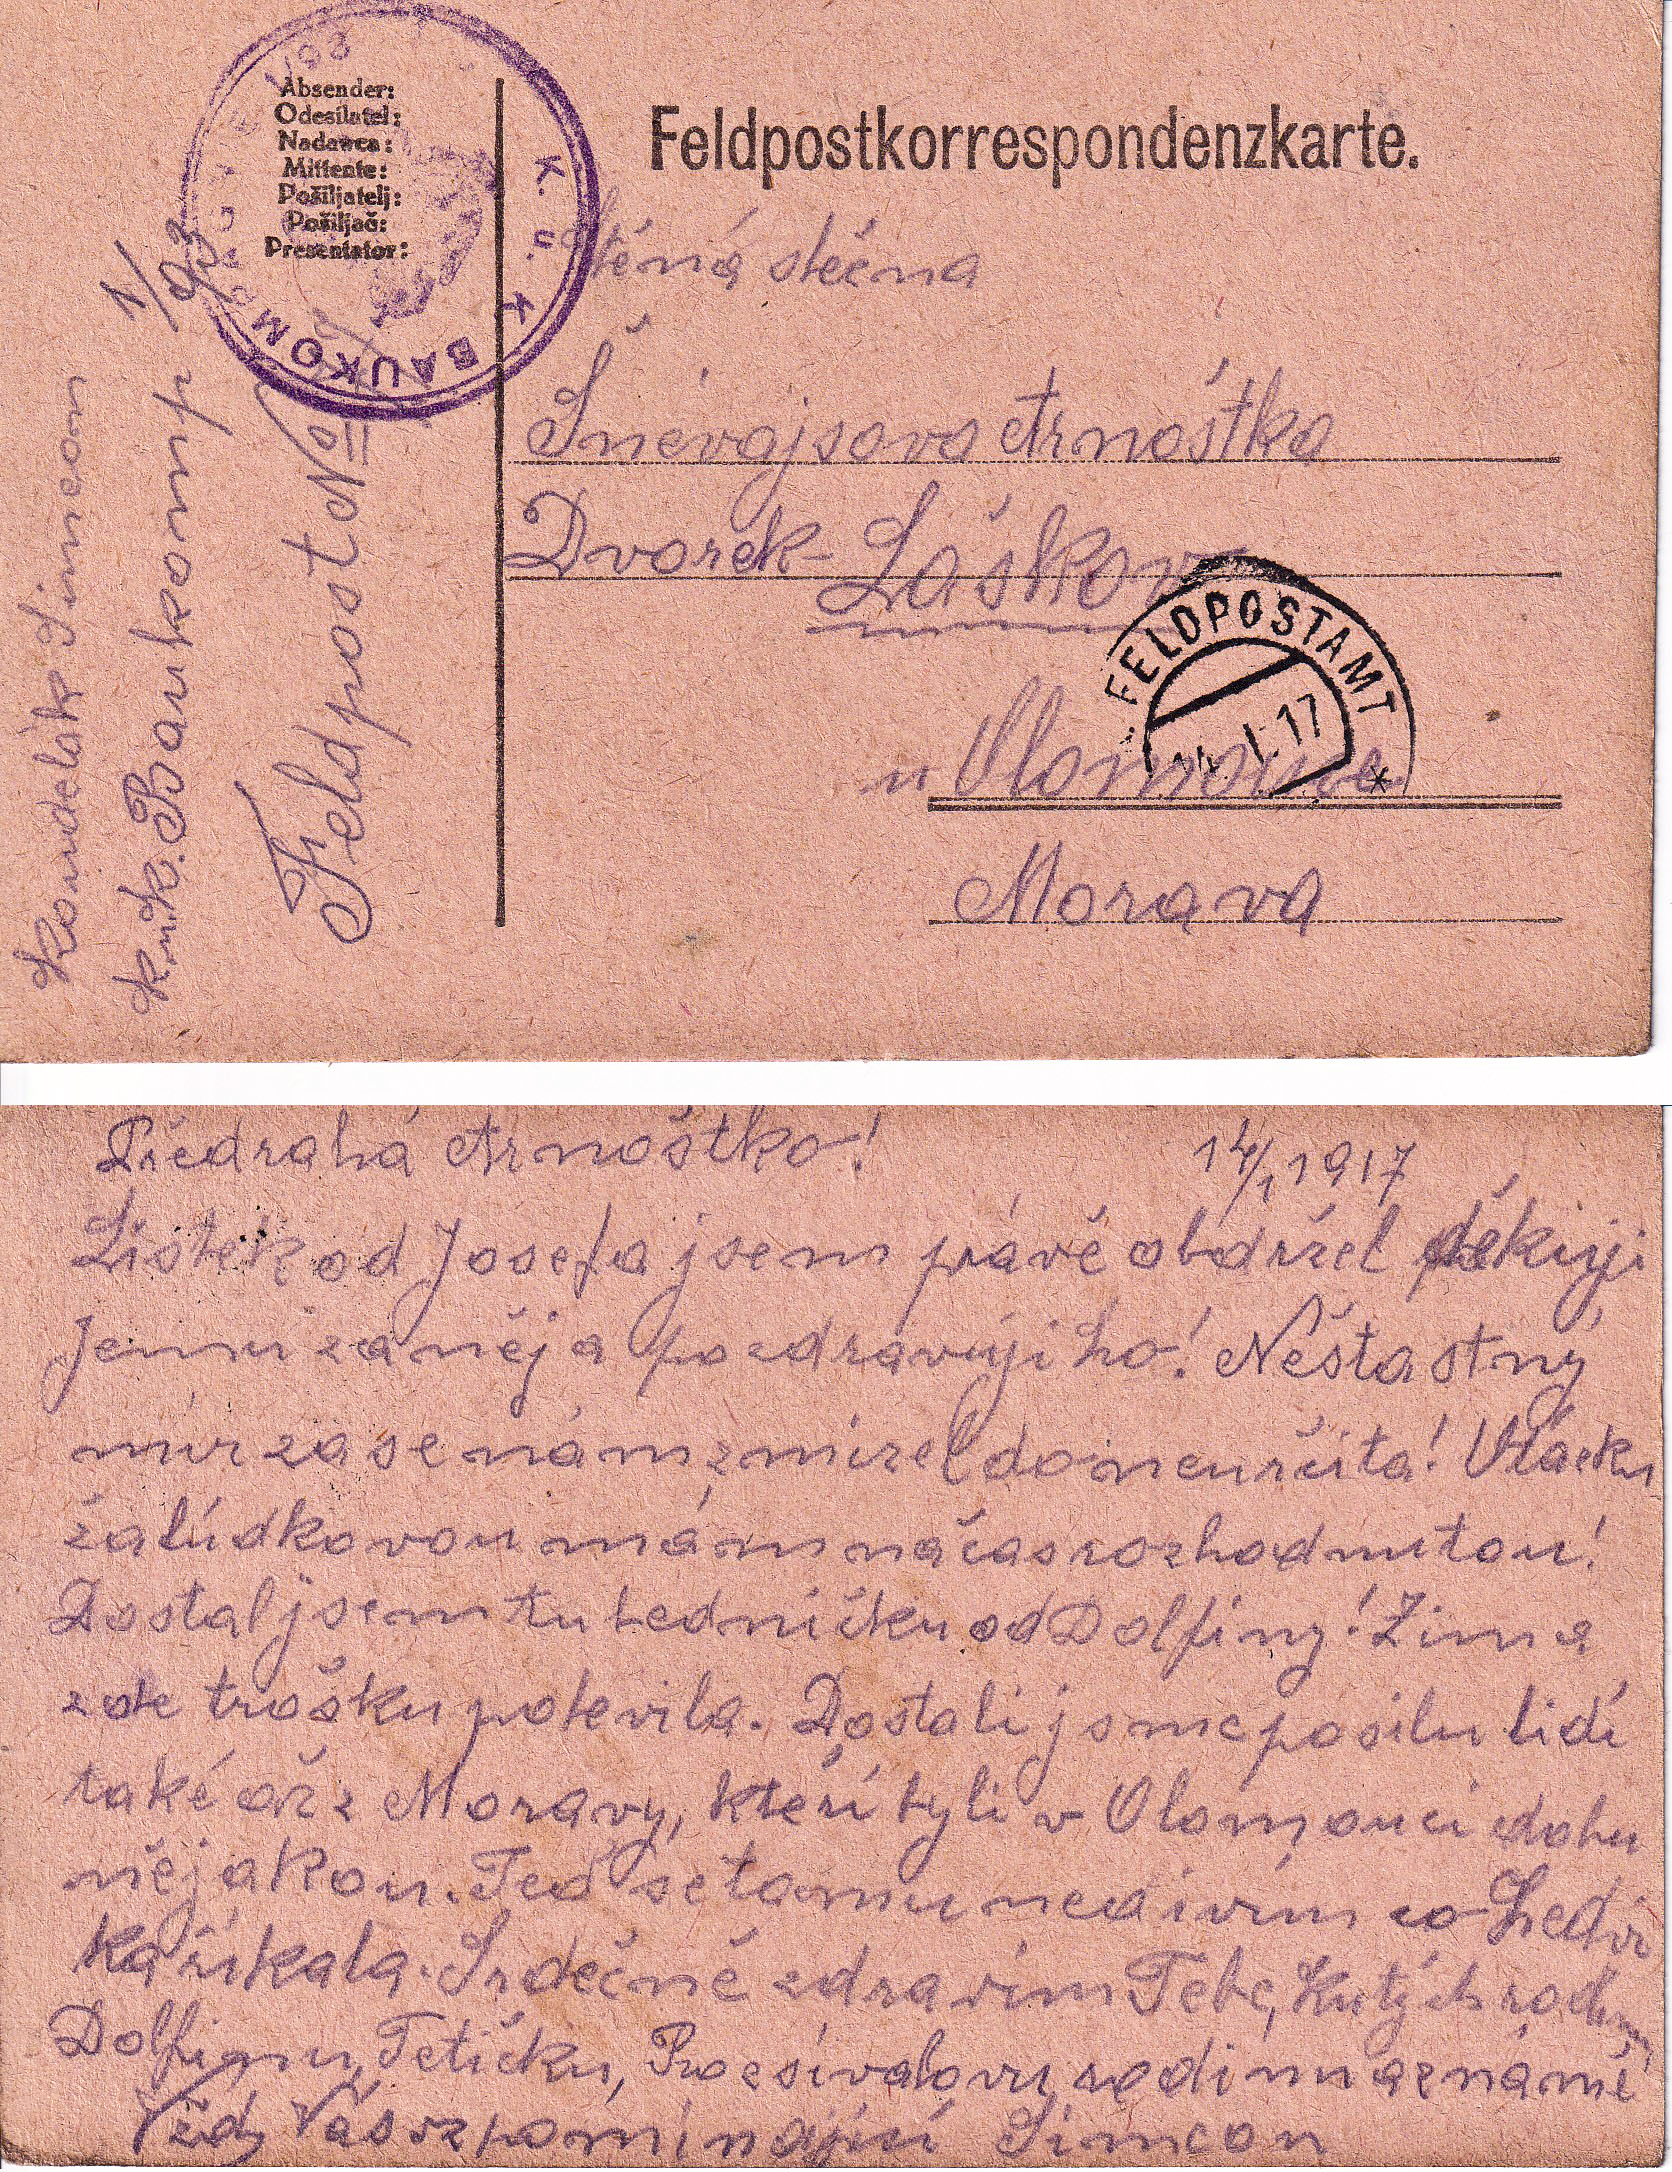 Absender:
Odesílatel:
Nadawca:
Mittente:
Pošiljatelj:
Pošiljač:
Presentator:
K. u. K. BAUKOMP
Feldpostkorrespondenzkarte.
Ctěná slečna
Šnévajsova Arnoštka
Dvorek- Laškov
u Olomouce
Morava
FELDPOSTAMT
14. I. 17
Kondelák Simeon
K.u.K. Baukomp 1/93
Feldpost No
Předrahá Arnoštko! 14/1 1917
Lístek od Josefa jsem právě obdržel děkuji
jemu za něj a pozdravuji ho! Nešťastný
mír zase nám zmizel do neurčita! Otázku
žalúdkovou mám načas rozhodnutou!
Dostal jsem tu ledničku od Dolfiny! Zima
zde trošku polevila. Dostali jsme posilu lidí
také až z Moravy, kteří byli v Olomouci dobu
nějakou. Teď se tomu nedivím co
ka říkala. Srdečně zdravím Tebe, Kutých rodinu,
Dolfinu, Tetičku, rodinu a známé
Vždy Vás vzpomínající Simeon